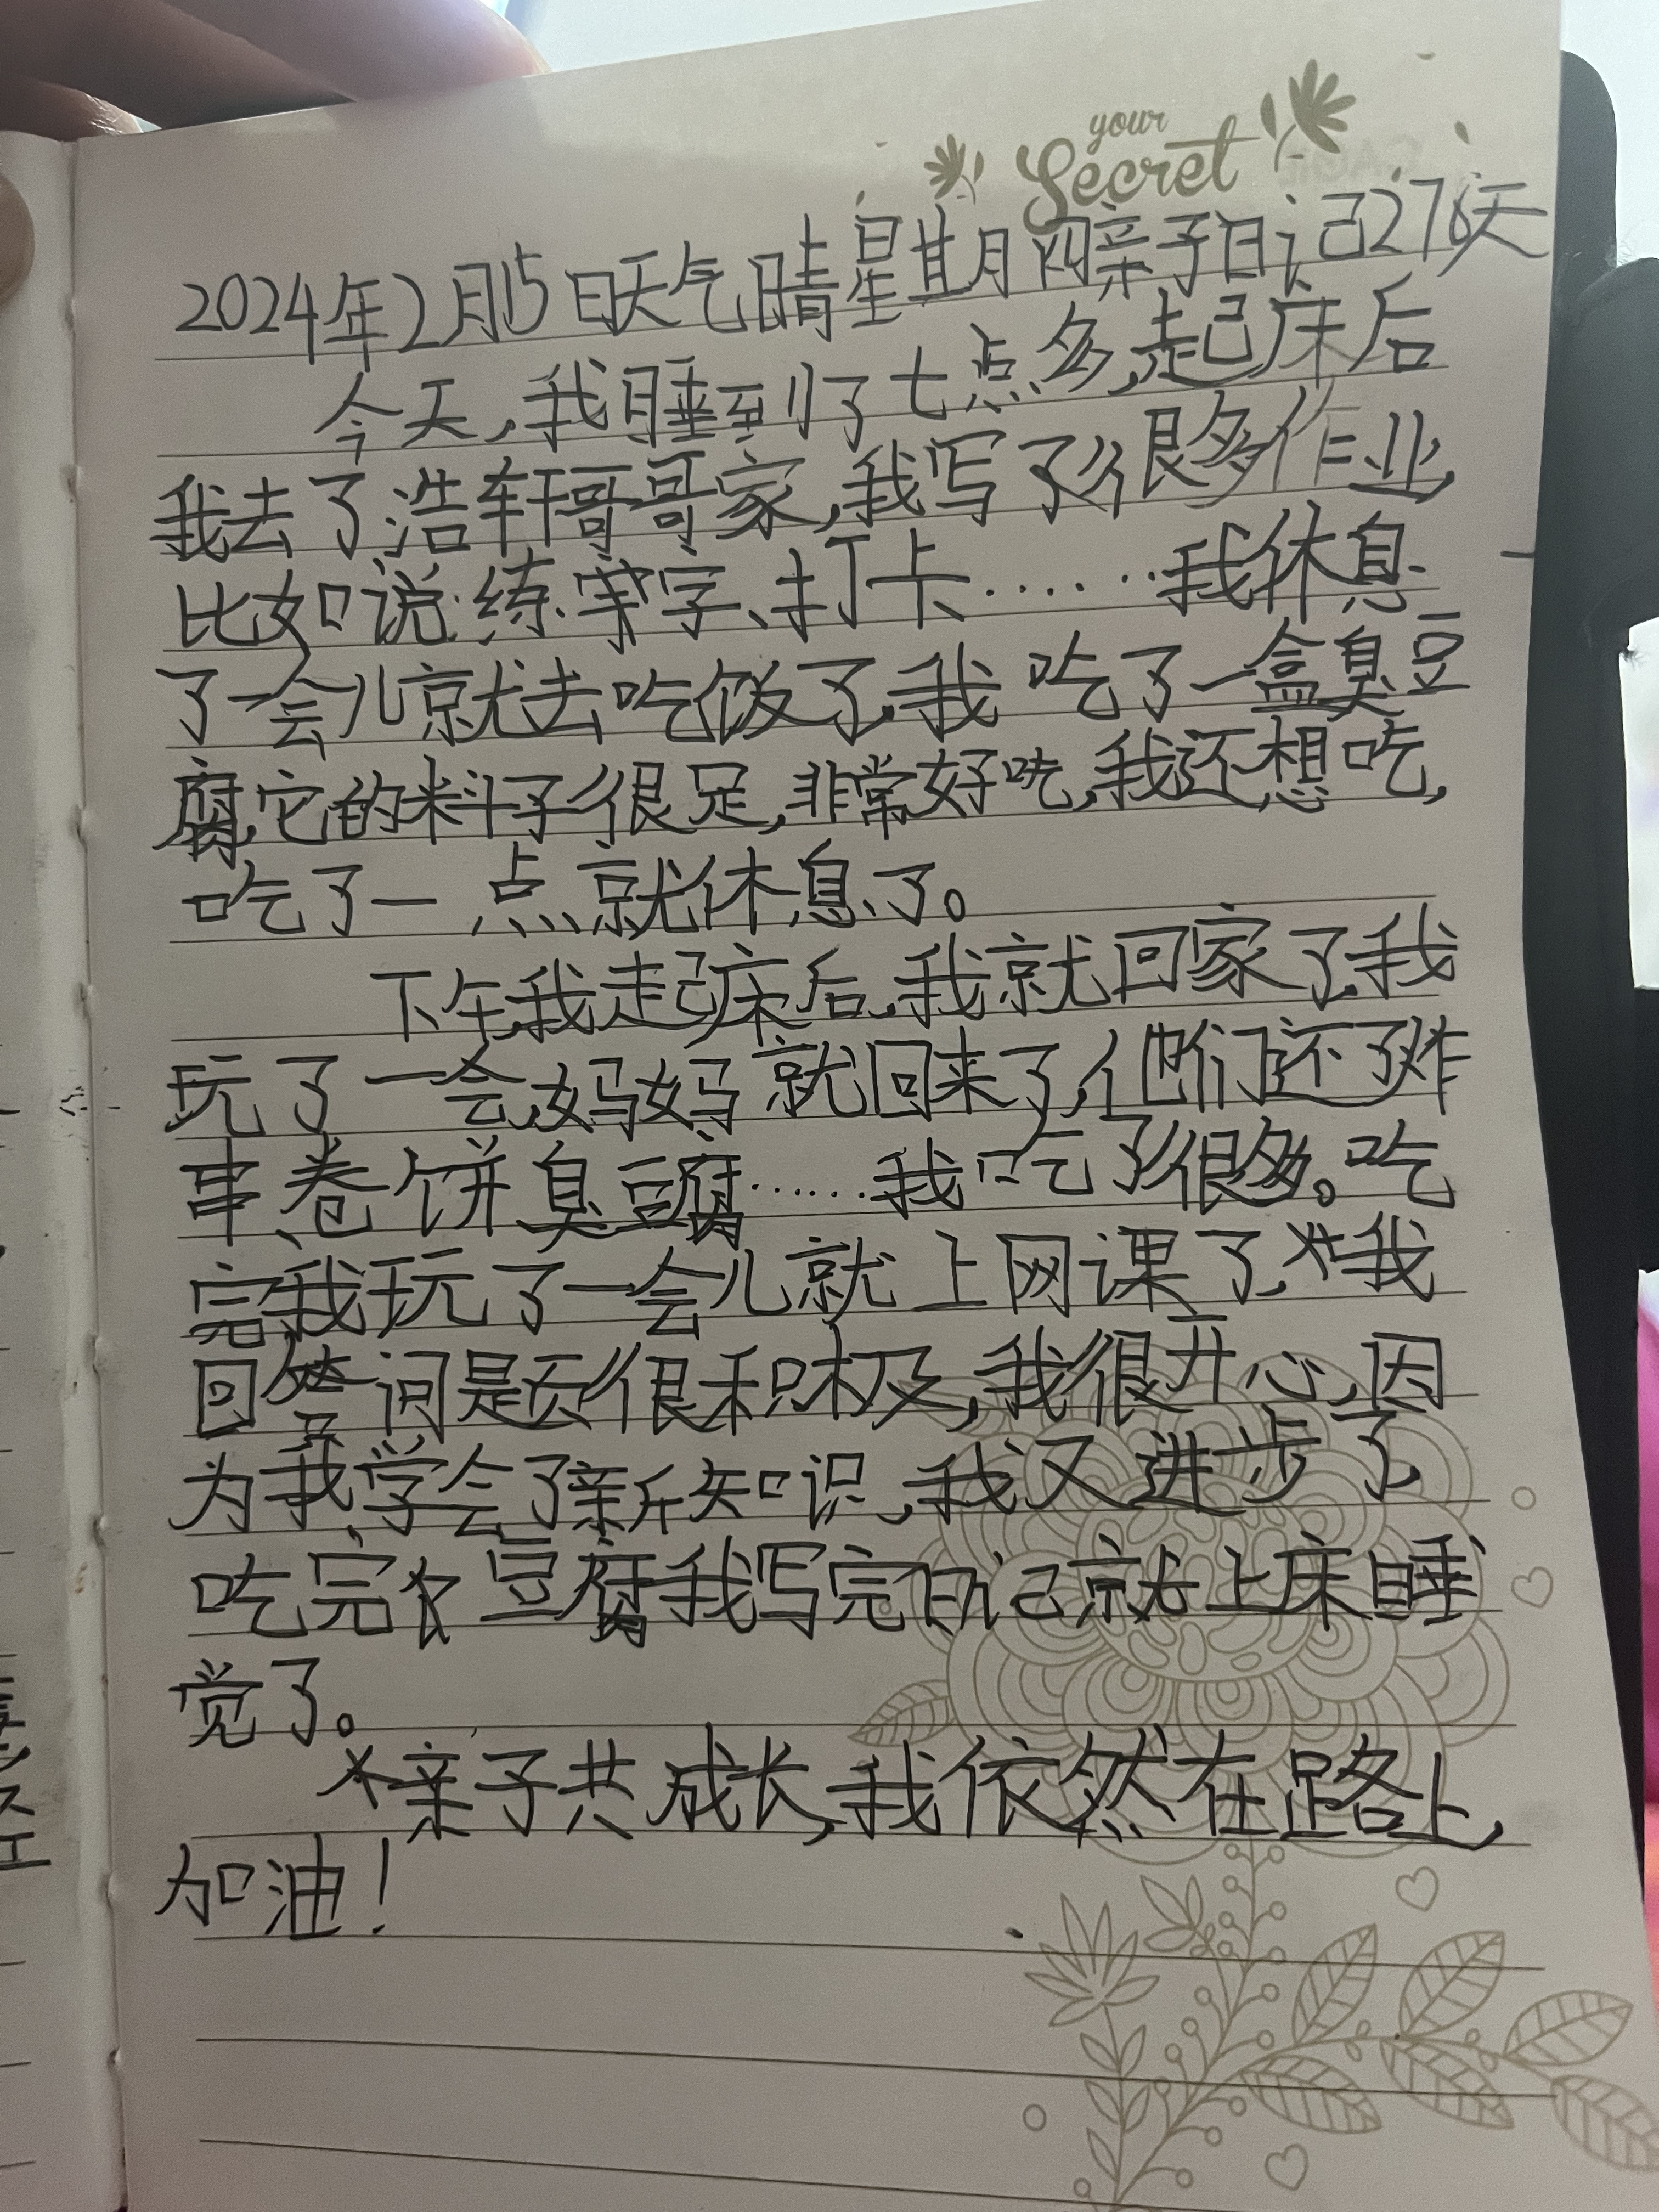 your
Secret
2024年2月15日天气晴星期四亲子日记276天
今天,我睡到了七点多,起床后
我去了浩轩哥哥家,我写了很多作业,
比如说:练字、打卡……我休息
了一会儿就去吃饭了,我吃了一盒臭豆
腐,它的料子很足,非常好吃,我还想吃,
吃了一点就休息了。
下午,我起床后,我就回家了,我
玩了一会,妈妈就回来了,他们还了炸
串、卷饼臭豆腐……我吃了很多。吃
完,我玩了一会儿就上网课了,我
回答问题很积极,我很开心,因
为我学会了新知识,我又进步了,
吃完豆腐我写完日记就上床睡
觉了。
亲子共成长,我依然在路上,
加油!